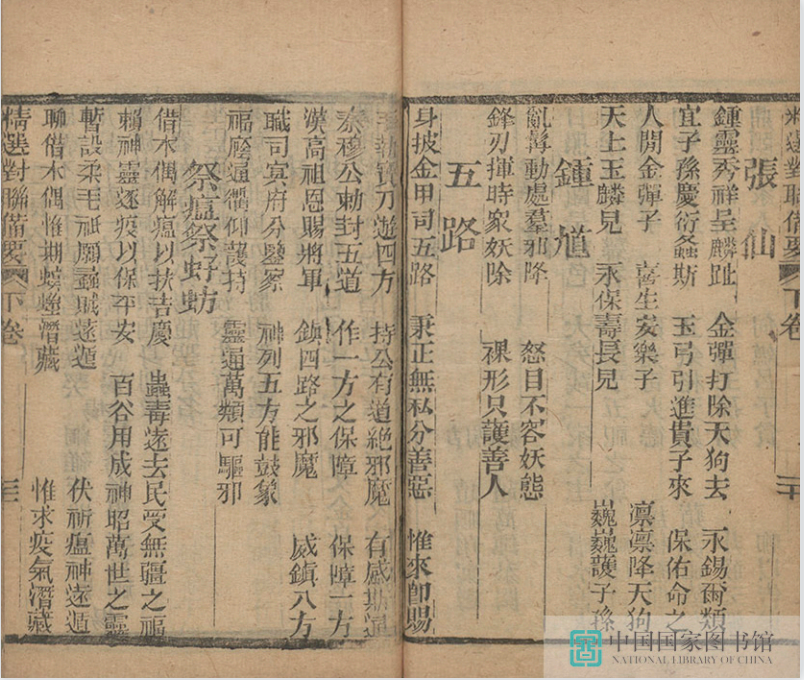 精選對聯備要 下卷
張仙
鍾靈秀祥呈麟趾 金彈打除天狗去 永錫爾類
宜子孫慶衍螽斯 玉弓引進貴子來 保佑命之
人間金彈子 喜生安樂子 凜凜降天狗
天上玉麟兒 永保壽長兒 巍巍護子孫
鍾馗
動處羣邪降 怒目不容妖態
鋒刃揮時衆妖除 裸形只護善人
五路
身披金甲司五路 秉正無私分善惡 惟來卽賜
手執寶刀遊四方 持公有道絕邪魔 有感斯通
秦穆公勅封五道 作一方之保障 保障一方
漢高祖恩賜將軍 鎮四路之邪魔 威鎮八方
職司冥府分鑒察 神列五方能鼓象
福庇通衢仰護持 靈通萬類可驅邪
祭瘟祭虸蚄
借木偶解瘟以扶吉慶 蟲毒遠去民受無疆之福
賴神靈逐疫以保平安 百谷用成神昭萬世之靈
暫設柔毛祇願蟊賊遠遁 伏祈瘟神遠遁
聊借木偶惟期螟螣潛藏 惟求疫氣潛藏
精選對聯備要 下卷
中国国家图书馆
NATIONAL LIBRARY OF CHINA